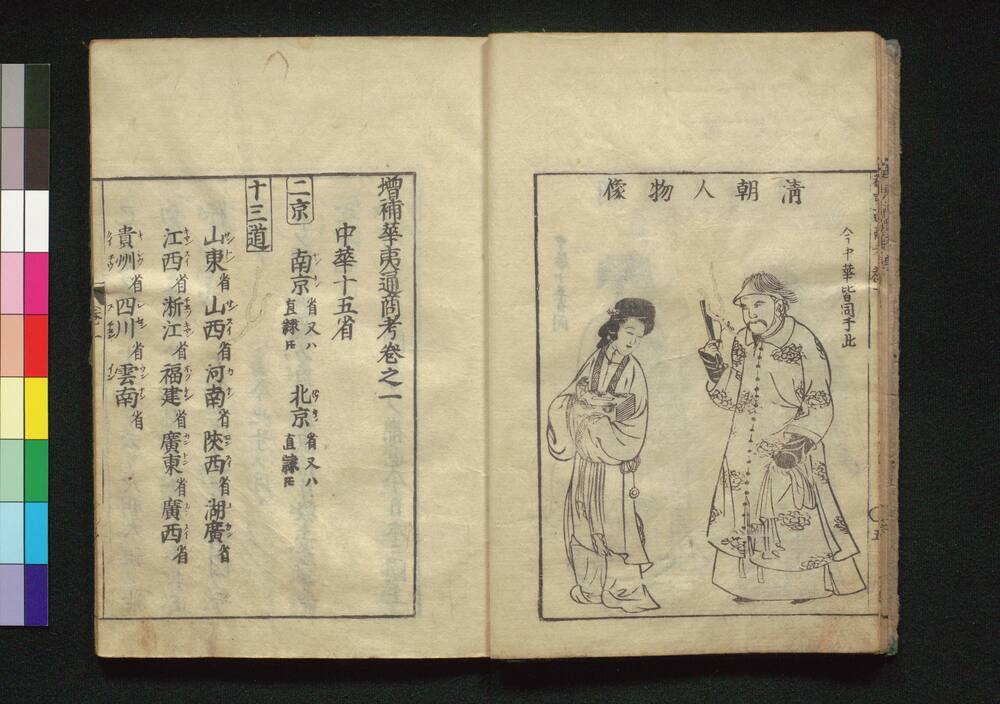 清朝人物像
今中華皆同于此
増補華夷通商考巻之一
中華十五省
二京 南京省又ハ直隷圧 北京省又ハ直隷圧
十三道
山東省 山西省 河南省 陝西省 湖廣省
江西省 浙江省 福建省 廣東省 廣西省
貴州省 四川省 雲南省